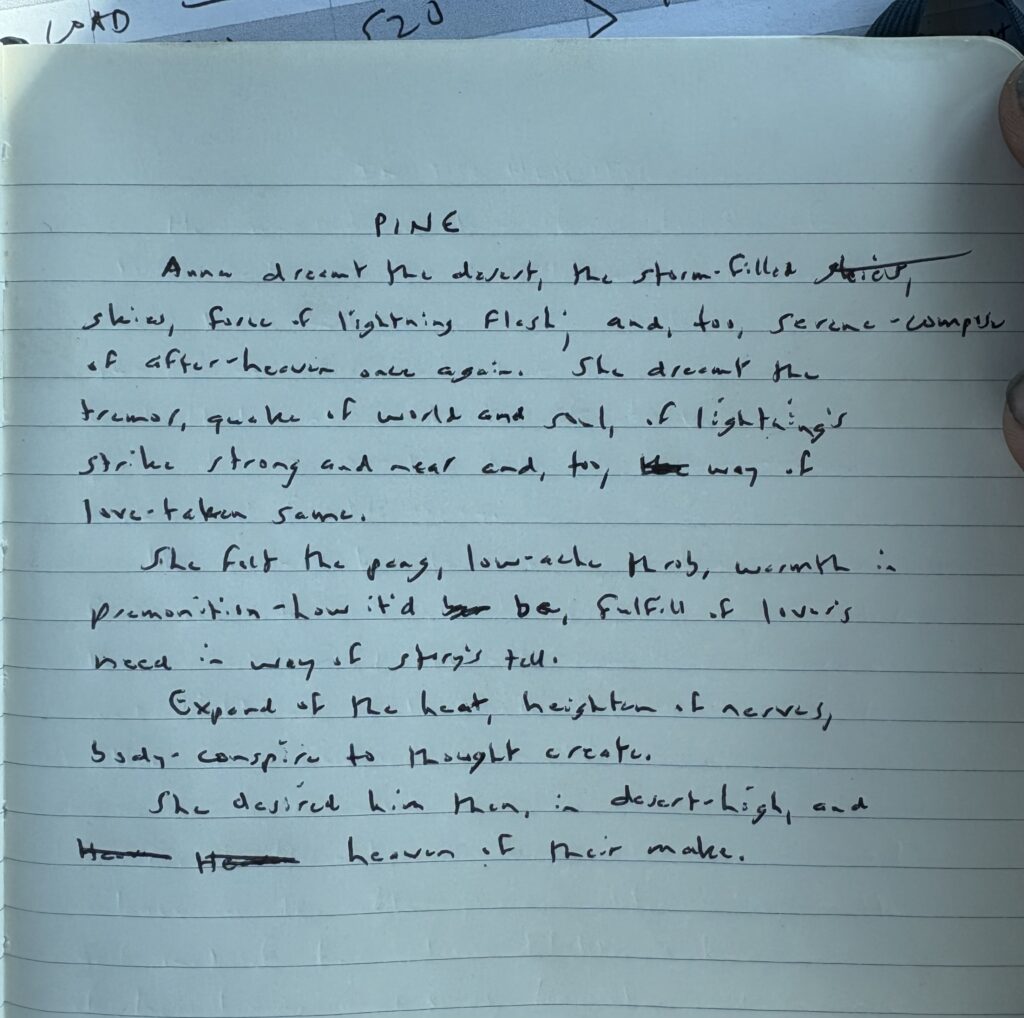 LOAD
(20
PINE
Anna dreamt the desert, the storm-filled
skies, force of lightning flash; and, too, serene-compose
of after-heaven once again. She dreamt the
tremor, quake of world and soul, of lightning's
strike strong and near and, too, way of
love-taken same.
She felt the pang, low-ache throb, warmth in
premonition-how it'd be, fulfill of lover's
need in way of story's tell.
Expand of the heat, heighten of nerves,
body-conspire to thought create.
She desired him then, in desert-high, and
heaven of their make.